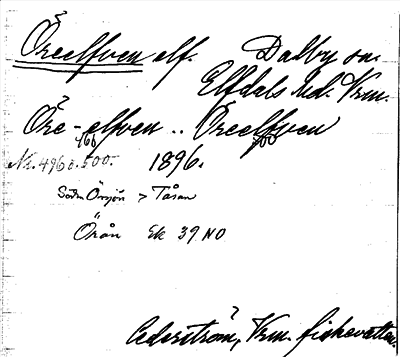 Öreelfven elf. Dalby sn.
Elfdals hd. Vrm.
Öre-elfven .. Öreelfven
166 700
No. 4960. 500. 1896.
Södra Örsjön > Tåsan
Örån Ek 39 NO
Cederström, Vrm. fiskevatten.